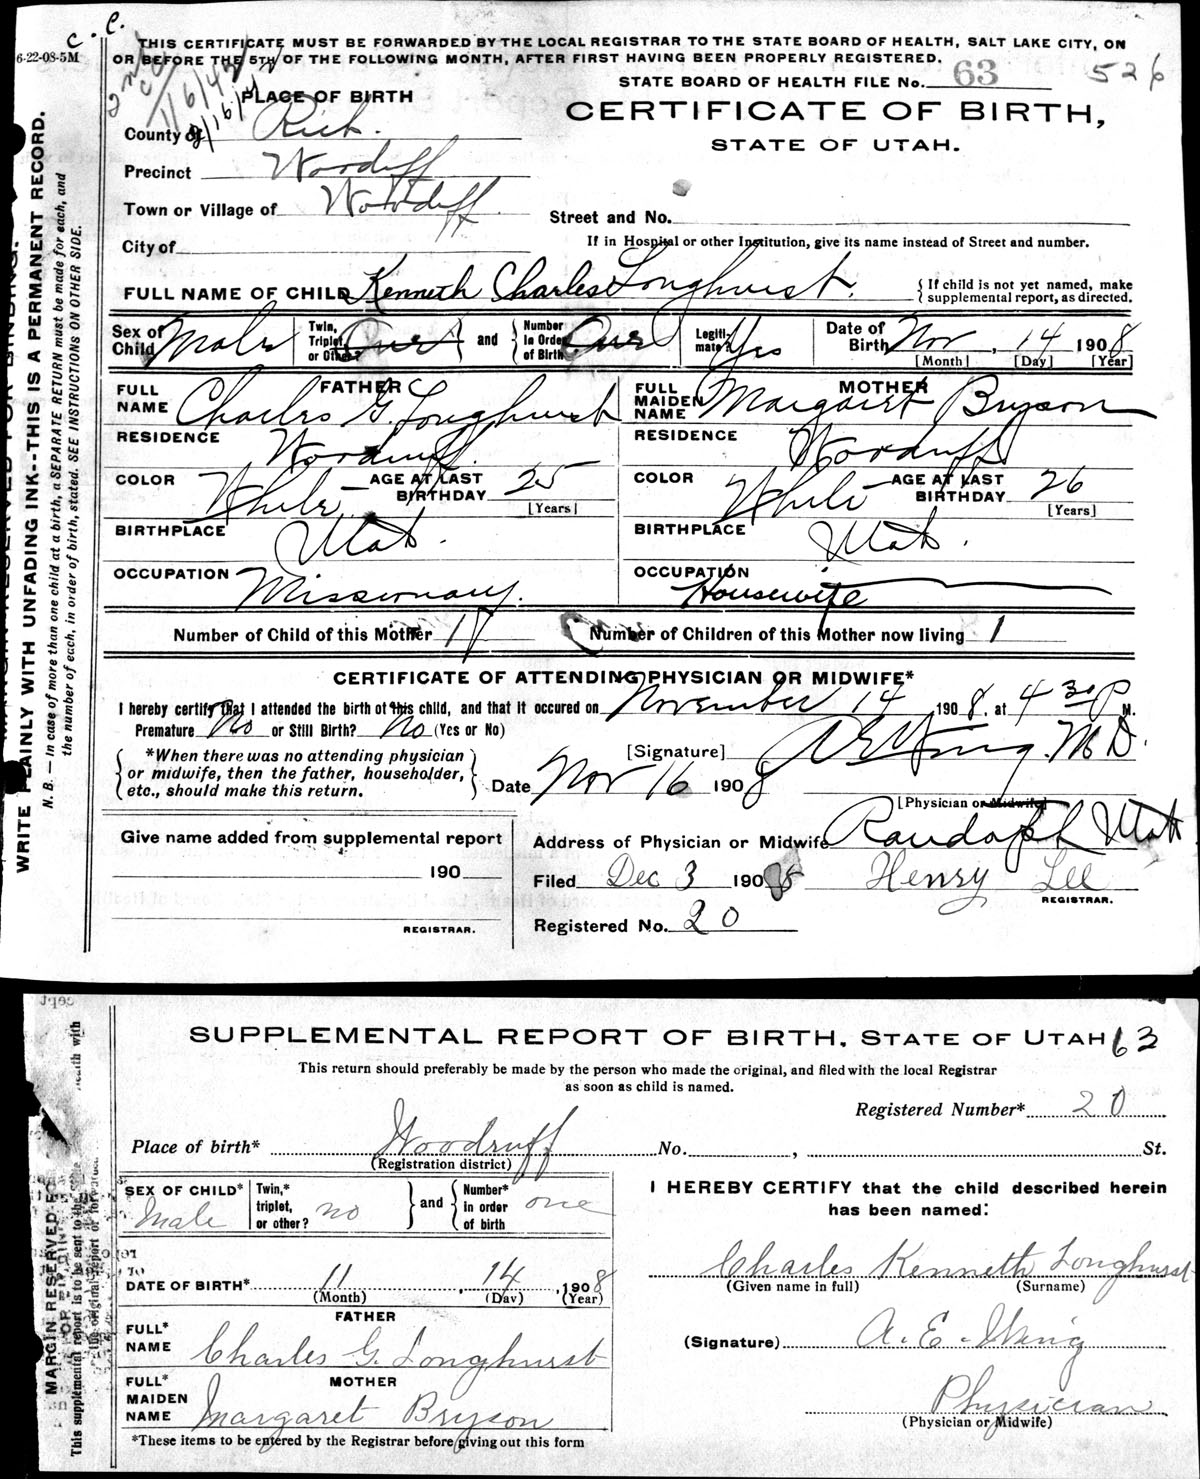 C. C.
6-22-08-5M
THIS CERTIFICATE MUST BE FORWARDED BY THE LOCAL REGISTRAR TO THE STATE BOARD OF HEALTH, SALT LAKE CITY, ON
OR BEFORE THE 5TH OF THE FOLLOWING MONTH, AFTER FIRST HAVING BEEN PROPERLY REGISTERED.
STATE BOARD OF HEALTH FILE No. 63 526
PLACE OF BIRTH
CERTIFICATE OF BIRTH,
STATE OF UTAH.
County of Rich.
Precinct Woodruff
Town or Village of Woodruff
Street and No.
City of
If in Hospital or other Institution, give its name instead of Street and number.
FULL NAME OF CHILD Kenneth Charles Longhurst. { If child is not yet named, make
supplemental report, as directed.
Sex of Child Male Twin, Triplet, or Other? One } and { Number in Order of Birth One Legiti-mate? Yes Date of Birth Nov, 14 1908
[Month] [Day] [Year]
FATHER
FULL NAME Charles G. Longhurst
RESIDENCE Woodruff.
COLOR White AGE AT LAST BIRTHDAY 25
[Years]
BIRTHPLACE Utah.
OCCUPATION Missionary.
MOTHER
FULL MAIDEN NAME Margaret Bryson
RESIDENCE Woodruff
COLOR White AGE AT LAST BIRTHDAY 26
[Years]
BIRTHPLACE Utah.
OCCUPATION Housewife
Number of Child of this Mother Number of Children of this Mother now living 1
CERTIFICATE OF ATTENDING PHYSICIAN OR MIDWIFE*
I hereby certify that I attended the birth of this child, and that it occured on November 14 1908, at 4 30 P M.
Premature No or Still Birth? No (Yes or No)
*When there was no attending physician
or midwife, then the father, householder,
etc., should make this return.
[Signature] A E King. M.D.
Date Nov 16 1908
[Physician or Midwife]
Address of Physician or Midwife Randolph Utah
Filed Dec 3 1908 Henry Lee
REGISTRAR.
Registered No. 20
Give name added from supplemental report
190
REGISTRAR.
WRITE PLAINLY WITH UNFADING INK--THIS IS A PERMANENT RECORD.
N. B. — In case of more than one child at a birth, a SEPARATE RETURN must be made for each, and
the number of each, in order of birth, stated. SEE INSTRUCTIONS ON OTHER SIDE.
SUPPLEMENTAL REPORT OF BIRTH, STATE OF UTAH 63
This return should preferably be made by the person who made the original, and filed with the local Registrar
as soon as child is named.
Registered Number* 20
Place of birth* Woodruff No. , St.
(Registration district)
SEX OF CHILD* Male Twin,* triplet, or other? no } and { Number* in order of birth one
DATE OF BIRTH* 11, 14, 1908
(Month) (Day) (Year)
FATHER
FULL* NAME Charles G. Longhurst
MOTHER
FULL* MAIDEN NAME Margaret Bryson
*These items to be entered by the Registrar before giving out this form
I HEREBY CERTIFY that the child described herein
has been named:
Charles Kenneth Longhurst
(Given name in full) (Surname)
(Signature) A. E. King
Physician
(Physician or Midwife)
MARGIN RESERVED
This supplemental report is to be sent to the